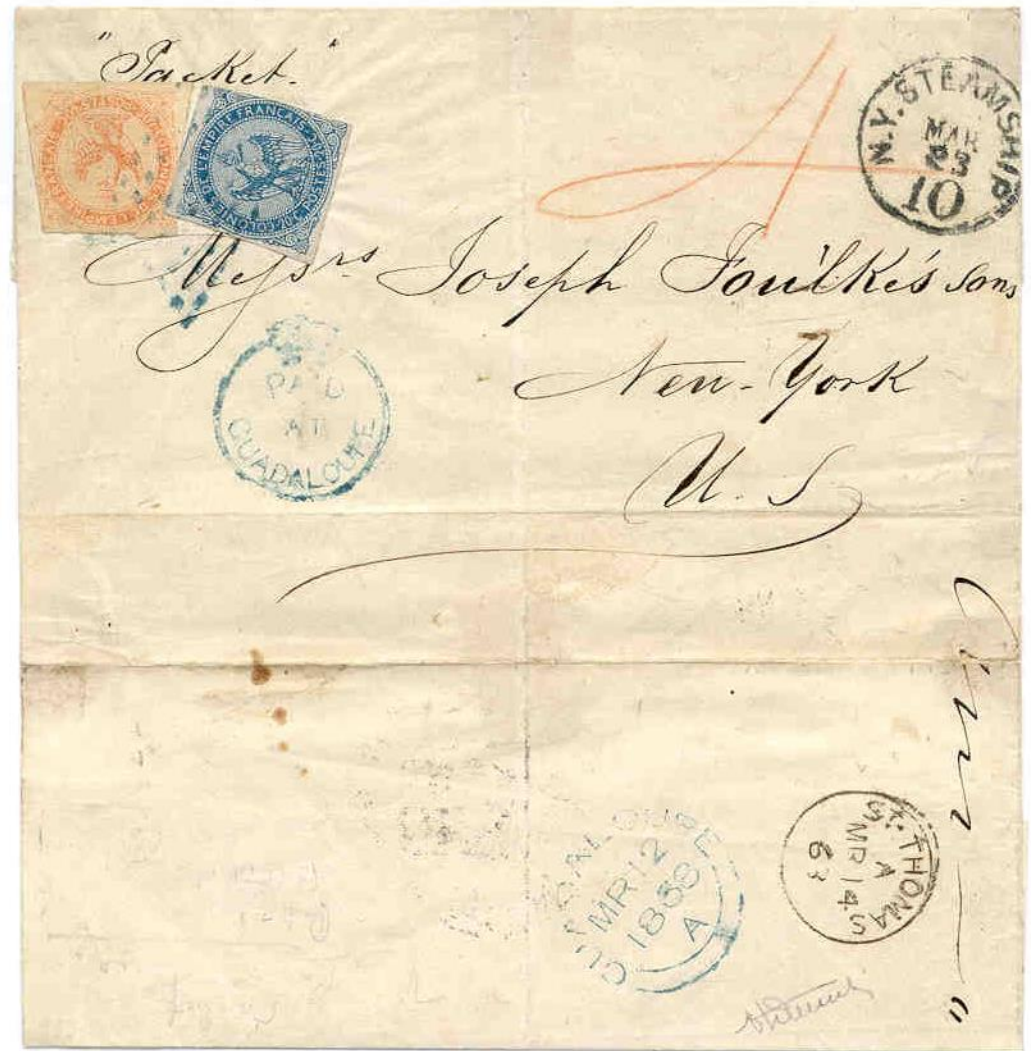 "Packet."
COLONIES DE L'EMPIRE FRANÇAIS · POSTES
20 C. POSTES
4
N.Y. STEAMSHIP
MAR
23
10
Messrs Joseph Foulke's Sons
New-York
U. S.
PAID
AT
GUADALOUPE
GUADALOUPE
MR 12
1863
A
ST. THOMAS
A
MR 14
63